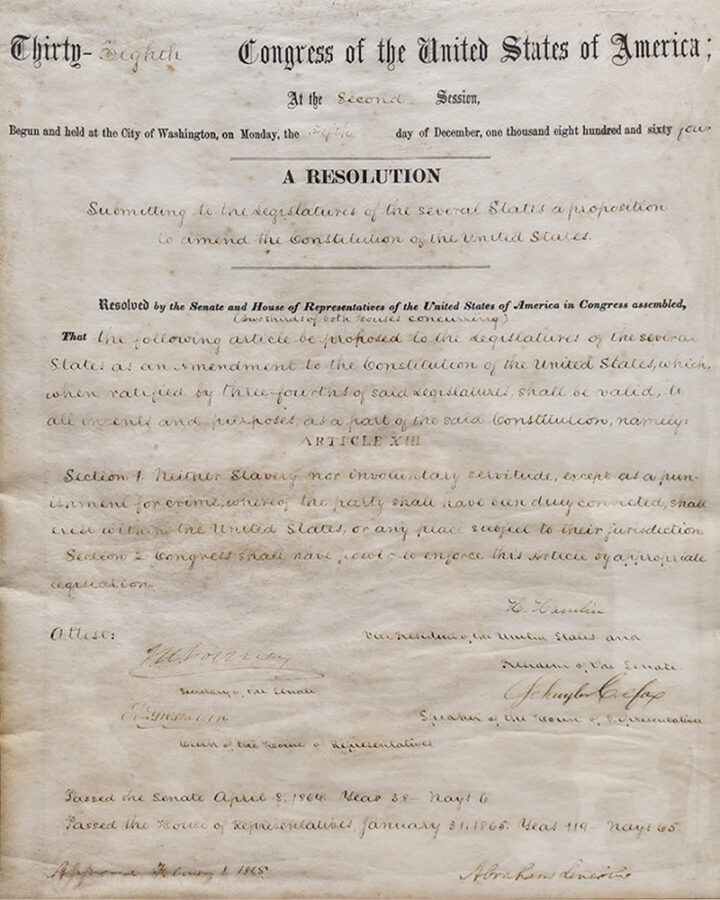 Thirty-Eighth Congress of the United States of America;
At the Second Session,
Begun and held at the City of Washington, on Monday, the fifth day of December, one thousand eight hundred and sixty four
A RESOLUTION
Submitting to the legislatures of the several States a proposition
to amend the Constitution of the United States.
Resolved by the Senate and House of Representatives of the United States of America in Congress assembled,
(two thirds of both houses concurring)
That the following article be proposed to the legislatures of the several
States as an amendment to the Constitution of the United States, which,
when ratified by three-fourths of said Legislatures, shall be valid, to
all intents and purposes, as a part of the said Constitution, namely:
ARTICLE XIII
Section 1. Neither Slavery nor involuntary servitude, except as a pun-
ishment for crime, whereof the party shall have been duly convicted, shall
exist within the United States, or any place subject to their jurisdiction
Section 2. Congress shall have power to enforce this article by appropriate
legislation.
H. Hamlin
Attest:
Vice President of the United States and
President of the Senate
Secretary of the Senate
Schuyler Colfax
Speaker of the House of Representatives
Clerk of the House of Representatives
Passed the Senate April 8, 1864. Yeas 38 - Nays 6.
Passed the House of Representatives, January 31, 1865. Yeas 119 - Nays 65.
Approved February 1. 1865
Abraham Lincoln